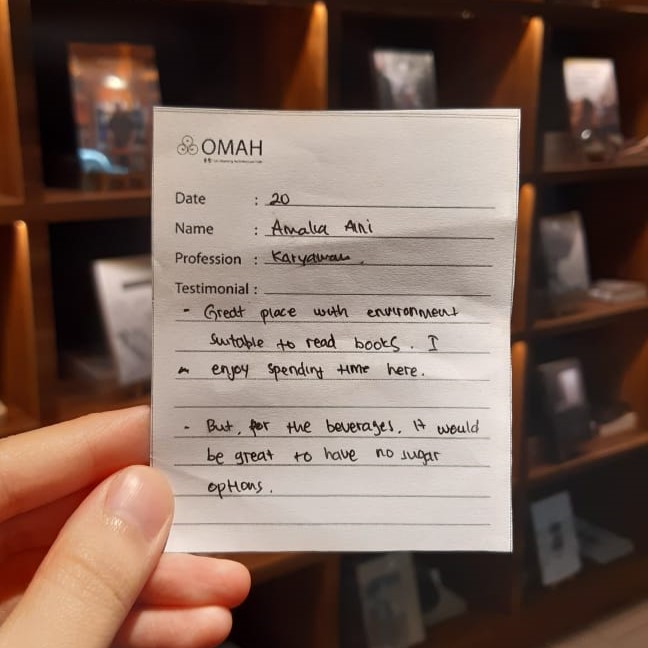 OMAH
Date : 20
Name : Amalia Aini
Profession : Karyawan.
Testimonial :
- Great place with environment
suitable to read books. I
enjoy spending time here.
- But, for the beverages, it would
be great to have no sugar
options.